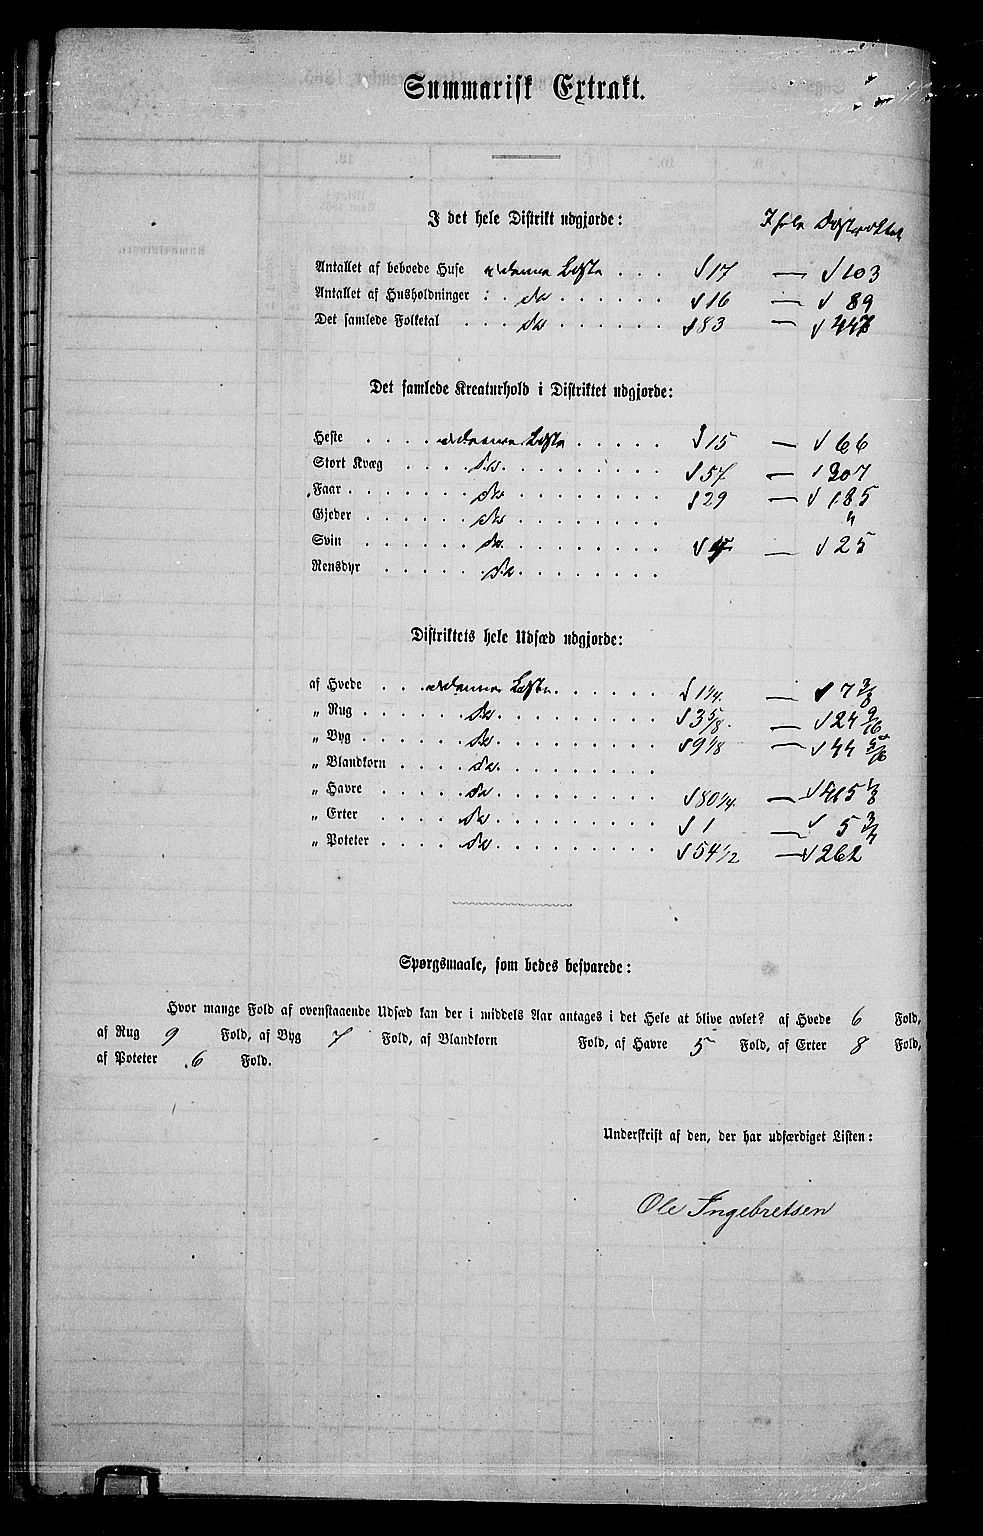 Summarisk Extrakt.
I det hele Distrikt udgjorde: I hele Distriktet
Antallet af beboede Huse denne Liste . . . 17 — 103
Antallet af Husholdninger : do . . . . . . 16 — 89
Det samlede Folketal . . . do . . . . . . 83 — 447
Det samlede Kreaturhold i Distriktet udgjorde:
Heste . . . . denne Liste . . . . . 15 — 66
Stort Kvæg . . . . do . . . . . . . 57 — 207
Faar . . . . . . do . . . . . . . 29 — 185
Gjeder . . . . . do . . . . . . . "
Svin . . . . . do . . . . . . . — 25
Rensdyr . . . . . . do . . . . . .
Distriktets hele Udsæd udgjorde:
af Hvede . . . denne Liste . . . . . 1 1/4 — 7 3/8
„ Rug . . . . do . . . . . . . 3 5/8 — 24 9/16
„ Byg . . . . do . . . . . . . 9 1/8 — 44 5/16
„ Blandkorn . . . do . . . . . . .
„ Havre . . . . do . . . . . . . 80 1/4 — 415 1/8
„ Erter . . . . do . . . . . . . 1 — 5 3/4
„ Poteter . . . . do . . . . . . . 54 1/2 — 262
Spørgsmaale, som bedes besvarede:
Hvor mange Fold af ovenstaaende Udsæd kan der i middels Aar antages i det Hele at blive avlet? af Hvede 6 Fold,
af Rug 9 Fold, af Byg 7 Fold, af Blandkorn Fold, af Havre 5 Fold, af Erter 8 Fold,
af Poteter 6 Fold.
Underskrift af den, der har udfærdiget Listen:
Ole Ingebretsen